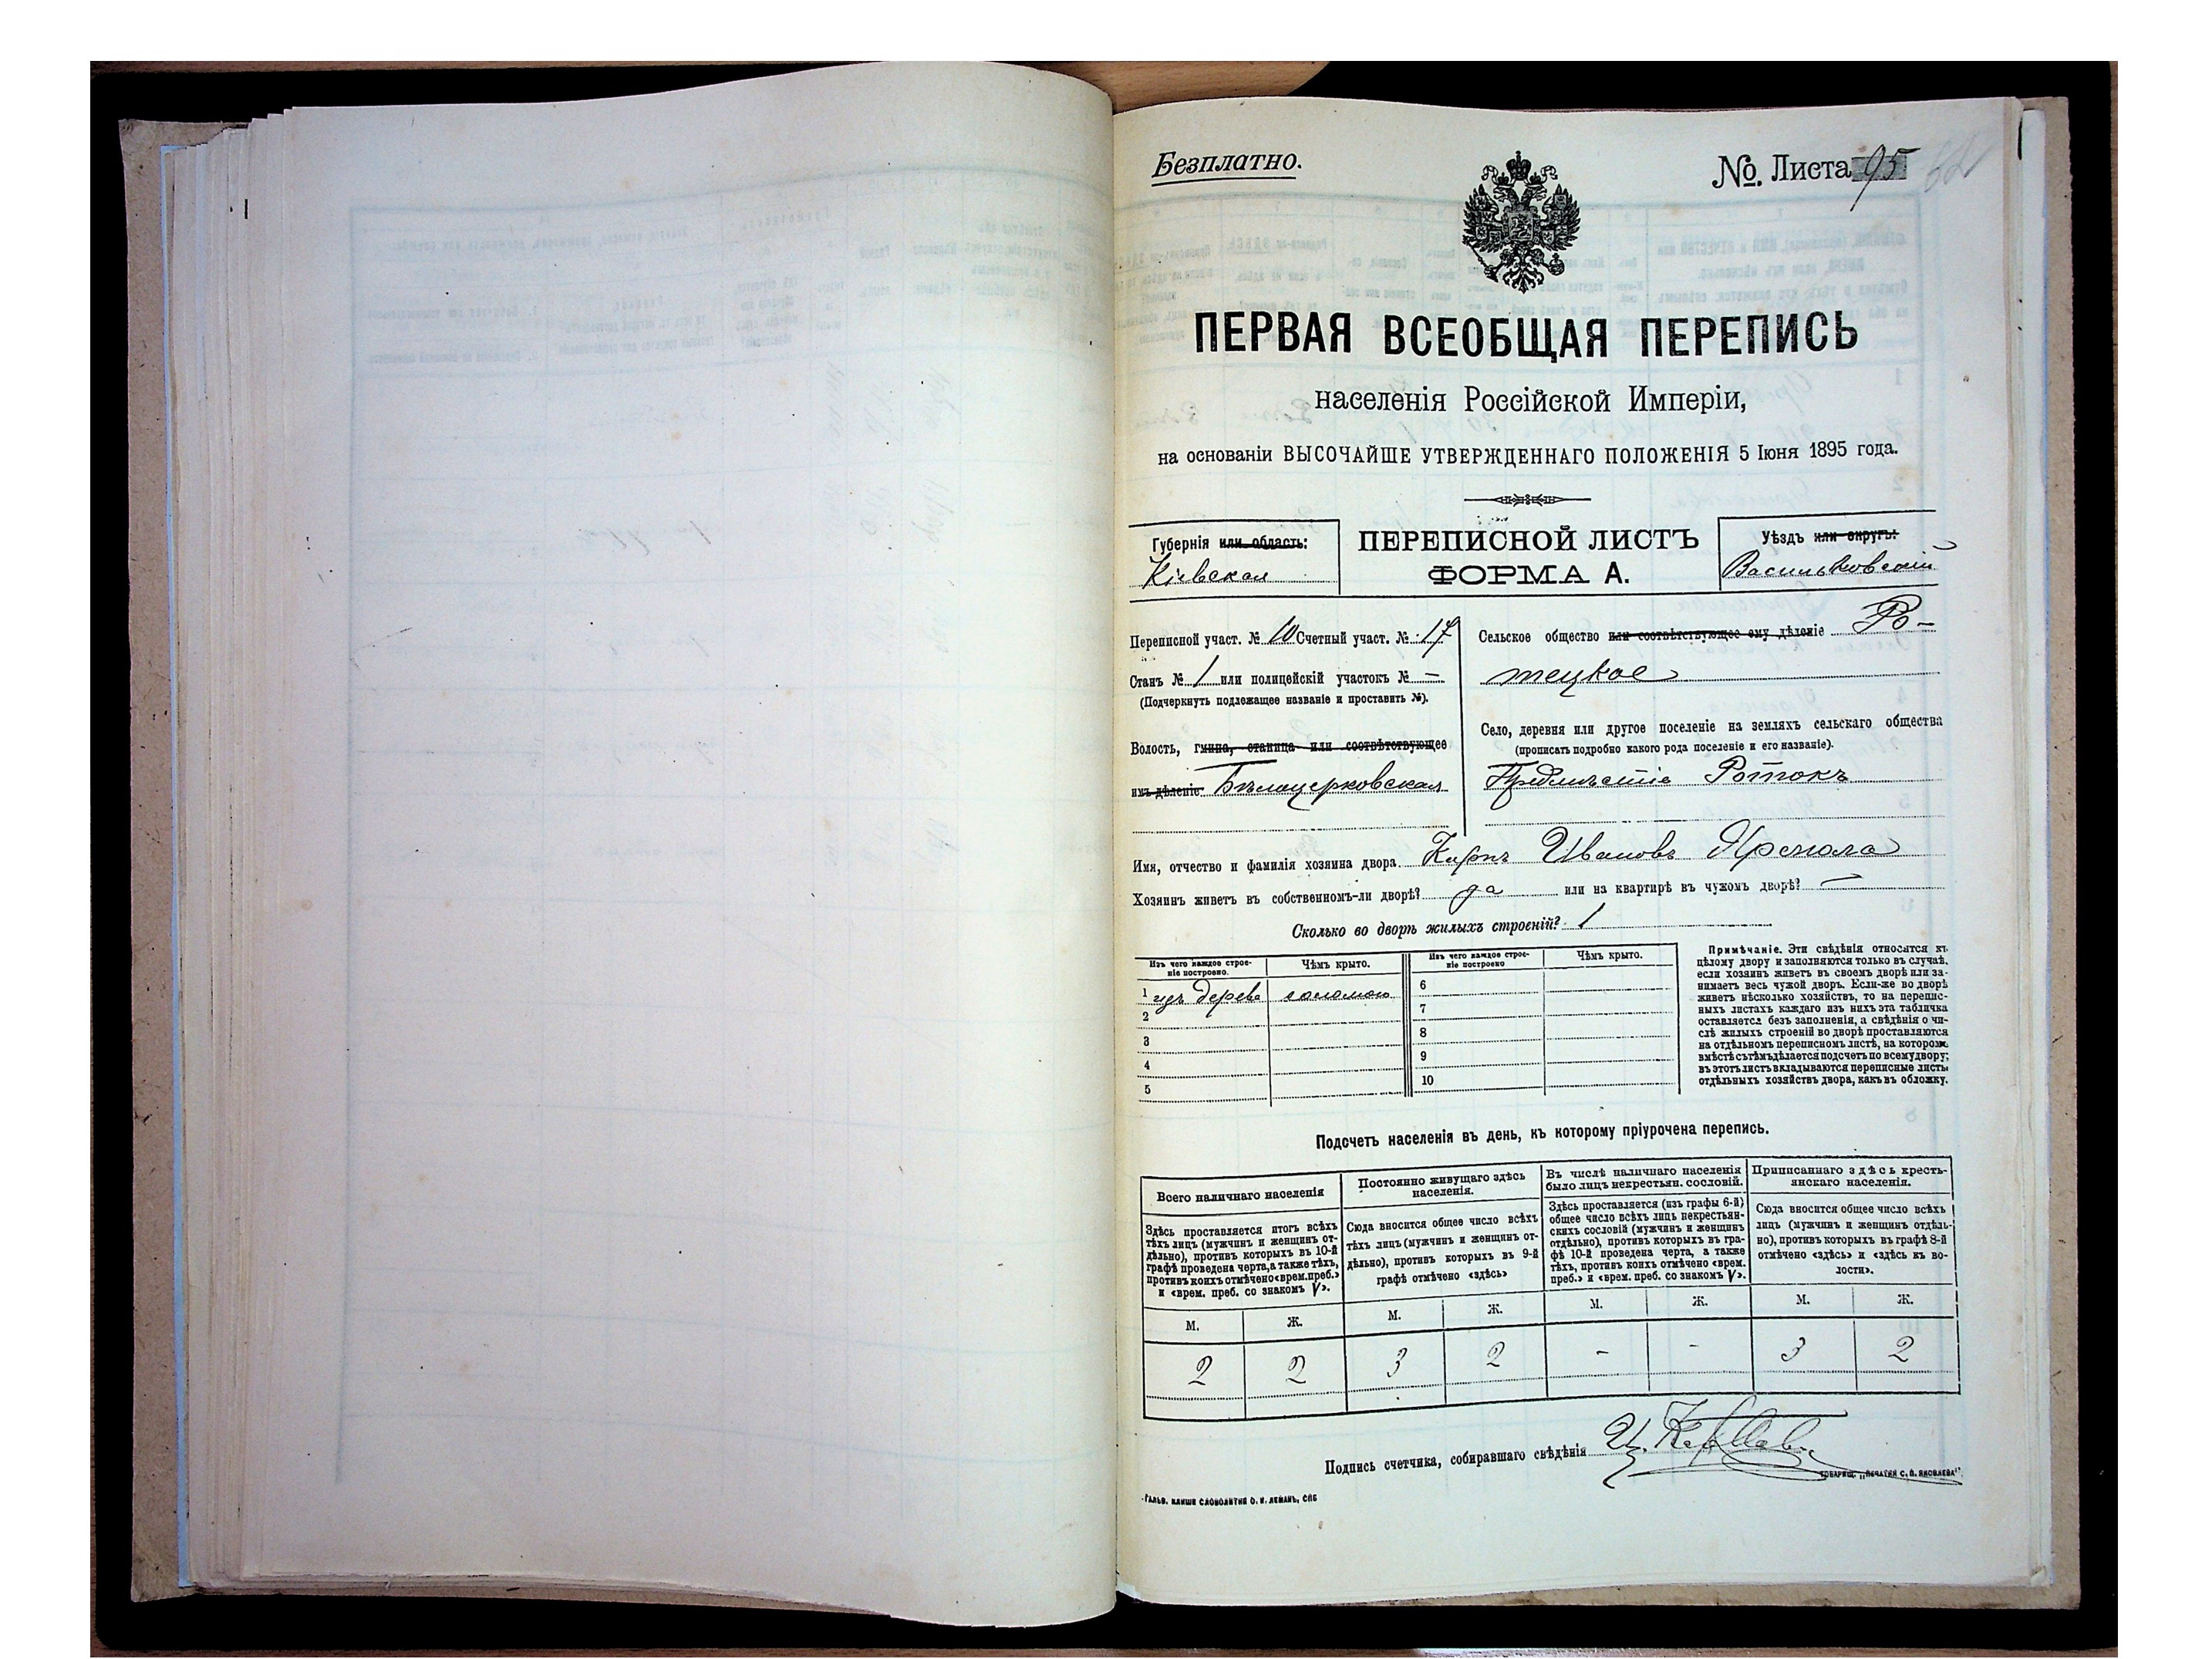 Безплатно.
№ Листа 95
ПЕРВАЯ ВСЕОБЩАЯ ПЕРЕПИСЬ
населенія Россійской Имперіи,
на основаніи ВЫСОЧАЙШЕ УТВЕРЖДЕННАГО ПОЛОЖЕНІЯ 5 Іюня 1895 года.
Губернія или область:
Кіевская
ПЕРЕПИСНОЙ ЛИСТЪ
ФОРМА А.
Уѣздъ или округъ:
Васильковскій
Переписной участ. № 10 Счетный участ. № 17
Станъ № 1 или полицейскій участокъ № —
(Подчеркнуть подлежащее названіе и проставить №).
Волость, гмина, станица или соотвѣтствующее
имъ дѣленіе Бѣлоцерковская
Сельское общество или соотвѣтствующее ему дѣленіе Ро-
тецкое
Село, деревня или другое поселеніе на земляхъ сельскаго общества
(прописать подробно какого рода поселеніе и его названіе).
Предмѣстіе Ротокъ
Имя, отчество и фамилія хозяина двора. Карпъ Ивановъ
Хозяинъ живетъ въ собственномъ-ли дворѣ? да или на квартирѣ въ чужомъ дворѣ? —
Сколько во дворѣ жилыхъ строеній? 1
Изъ чего каждое строе-
ніе построено.
Чѣмъ крыто.
Изъ чего каждое строе-
ніе построено
Чѣмъ крыто.
1 изъ дерева соломою
2
3
4
5
6
7
8
9
10
Примѣчаніе. Эти свѣдѣнія относятся къ
цѣлому двору и заполняются только въ случаѣ,
если хозяинъ живетъ въ своемъ дворѣ или за-
нимаетъ весь чужой дворъ. Если-же во дворѣ
живетъ нѣсколько хозяйствъ, то на перепис-
ныхъ листахъ каждаго изъ нихъ эта табличка
оставляется безъ заполненія, а свѣдѣнія о чи-
слѣ жилыхъ строеній во дворѣ проставляются
на отдѣльномъ переписномъ листѣ, на которомъ
вмѣстѣ съ тѣмъ дѣлается подсчетъ по всему двору;
въ этотъ листъ вкладываются переписные листы
отдѣльныхъ хозяйствъ двора, какъ въ обложку.
Подсчетъ населенія въ день, къ которому пріурочена перепись.
Всего наличнаго населенія
Постоянно живущаго здѣсь
населенія.
Въ числѣ наличнаго населенія
было лицъ некрестьян. сословій.
Приписаннаго здѣсь кресть-
янскаго населенія.
Здѣсь проставляется итогъ всѣхъ
тѣхъ лицъ (мужчинъ и женщинъ от-
дѣльно), противъ которыхъ въ 10-й
графѣ проведена черта, а также тѣхъ,
противъ коихъ отмѣчено «врем. преб.»
и «врем. преб. со знакомъ V».
Сюда вносится общее число всѣхъ
тѣхъ лицъ (мужчинъ и женщинъ от-
дѣльно), противъ которыхъ въ 9-й
графѣ отмѣчено «здѣсь»
Здѣсь проставляется (изъ графы 6-й)
общее число всѣхъ лицъ некрестьян-
скихъ сословій (мужчинъ и женщинъ
отдѣльно), противъ которыхъ въ гра-
фѣ 10-й проведена черта, а также
тѣхъ, противъ коихъ отмѣчено «врем.
преб.» и «врем. преб. со знакомъ V».
Сюда вносится общее число всѣхъ
лицъ (мужчинъ и женщинъ отдѣль-
но), противъ которыхъ въ графѣ 8-й
отмѣчено «здѣсь» и «здѣсь къ во-
лости».
М. Ж. М. Ж. М. Ж. М. Ж.
2 2 3 2 - - 3 2
Подпись счетчика, собиравшаго свѣдѣнія
ТОВАРИЩ. „ПЕЧАТНЯ С. П. ЯКОВЛЕВА".
ГАЛЬВ. КЛИШЕ СЛОВОЛИТНИ О. И. ЛЕМАНЪ, СПБ